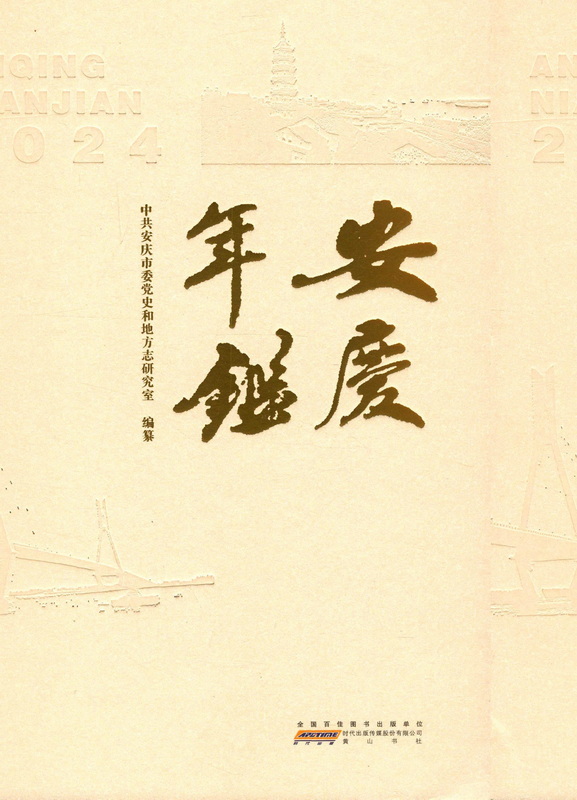 IQING
ANJIAN
024
AN
NI
2
安慶
年鑑
中共安庆市委党史和地方志研究室 编纂
全国百佳图书出版单位
APGTIME
时代出版
时代出版传媒股份有限公司
黄山书社